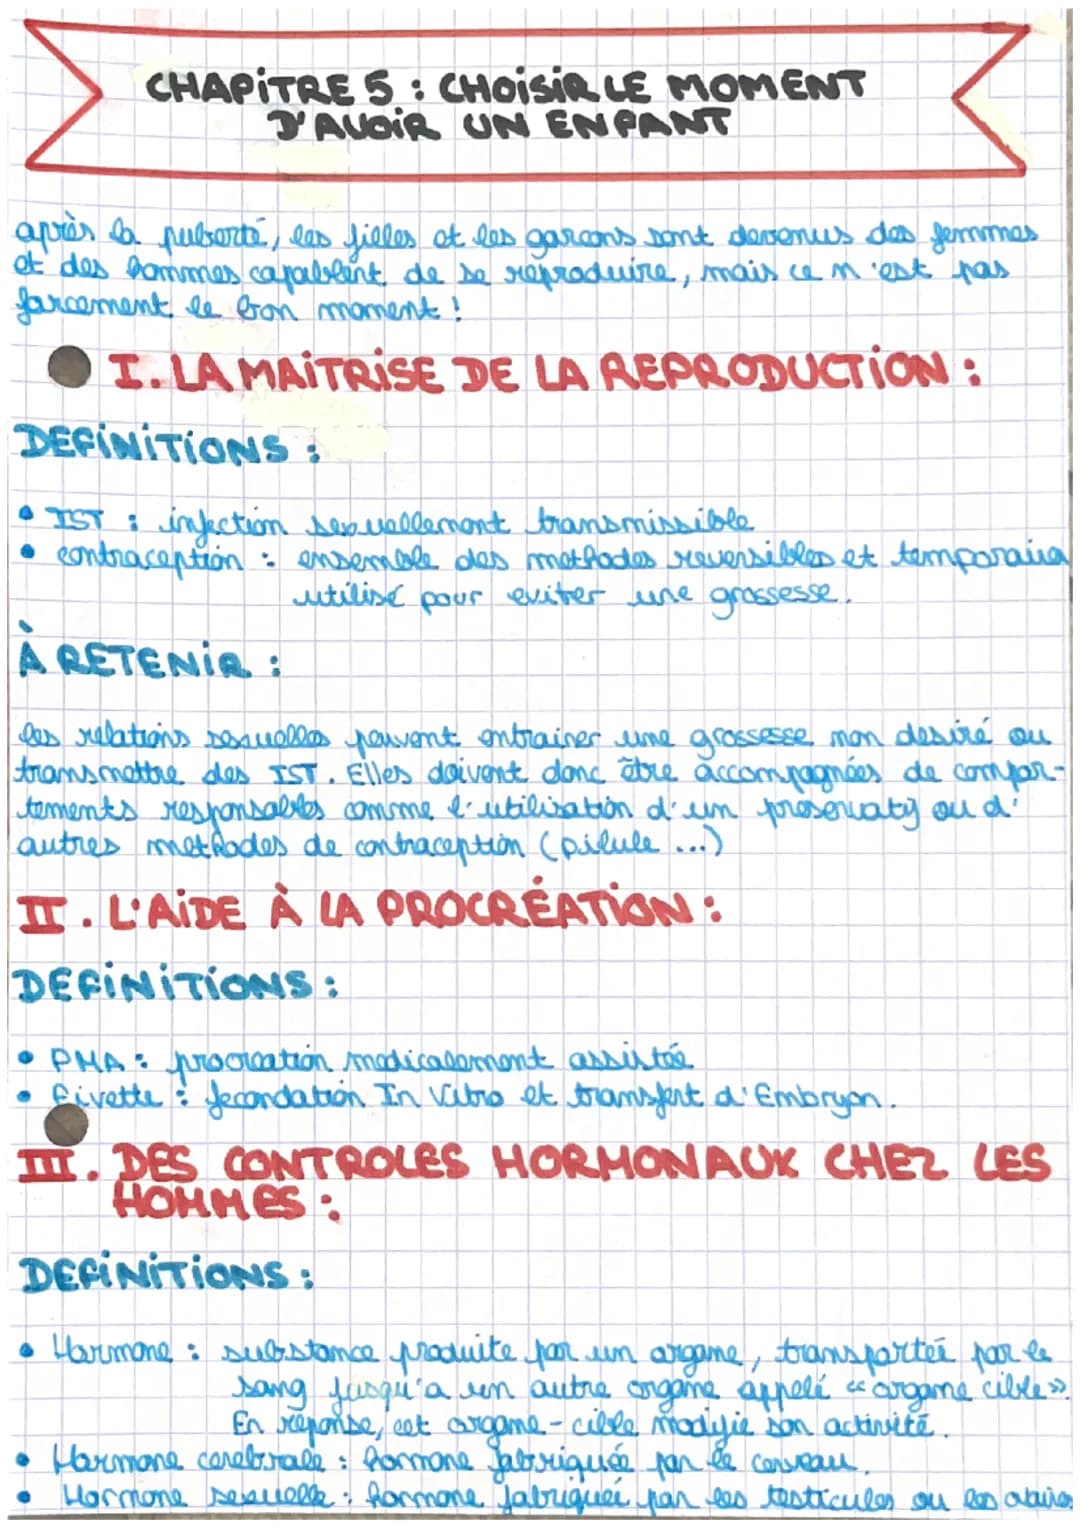 CHAPITRE 5 : CHOISIR LE MOMENT
D'AVOIR UN ENFANT
après la puberté, les filles et les garcons sont devenus des femmes
et des hommes capablent de se réproduire, mais ce n'est pas
forcement le bon moment !
I. LA MAITRISE DE LA REPRODUCTION :
DEFINITIONS :
• IST : infection sexuellement transmissible
• contraception : ensemble des methodes reversibles et temporaire
utilisé pour eviter une grossesse.
À RETENIR :
les relations sexuelles peuvent entrainer une grossesse non desiré ou
transmettre des IST. Elles doivent donc être accompagnées de compor-
tements responsables comme l'utilisation d'un preservatif ou d'
autres methodes de contraception (pilule ...)
II. L'AIDE À LA PROCRÉATION :
DEFINITIONS :
• PMA : procreation medicalement assistée
• Fivette : fecondation In Vitro et transfert d'Embryon.
III. DES CONTROLES HORMONAUX CHEZ LES
HOMMES :
DEFINITIONS :
• Hormone : substance produite par un organe, transporteé par le
sang jusqu'a un autre organe appelé « organe cible».
En réponse, cet organe-cible modifie son activité.
• Hormone cerebrale : hormone fabriquée par le cerveau.
• Hormone sexuelle : hormone fabriqueé par les testicules ou les ovaires